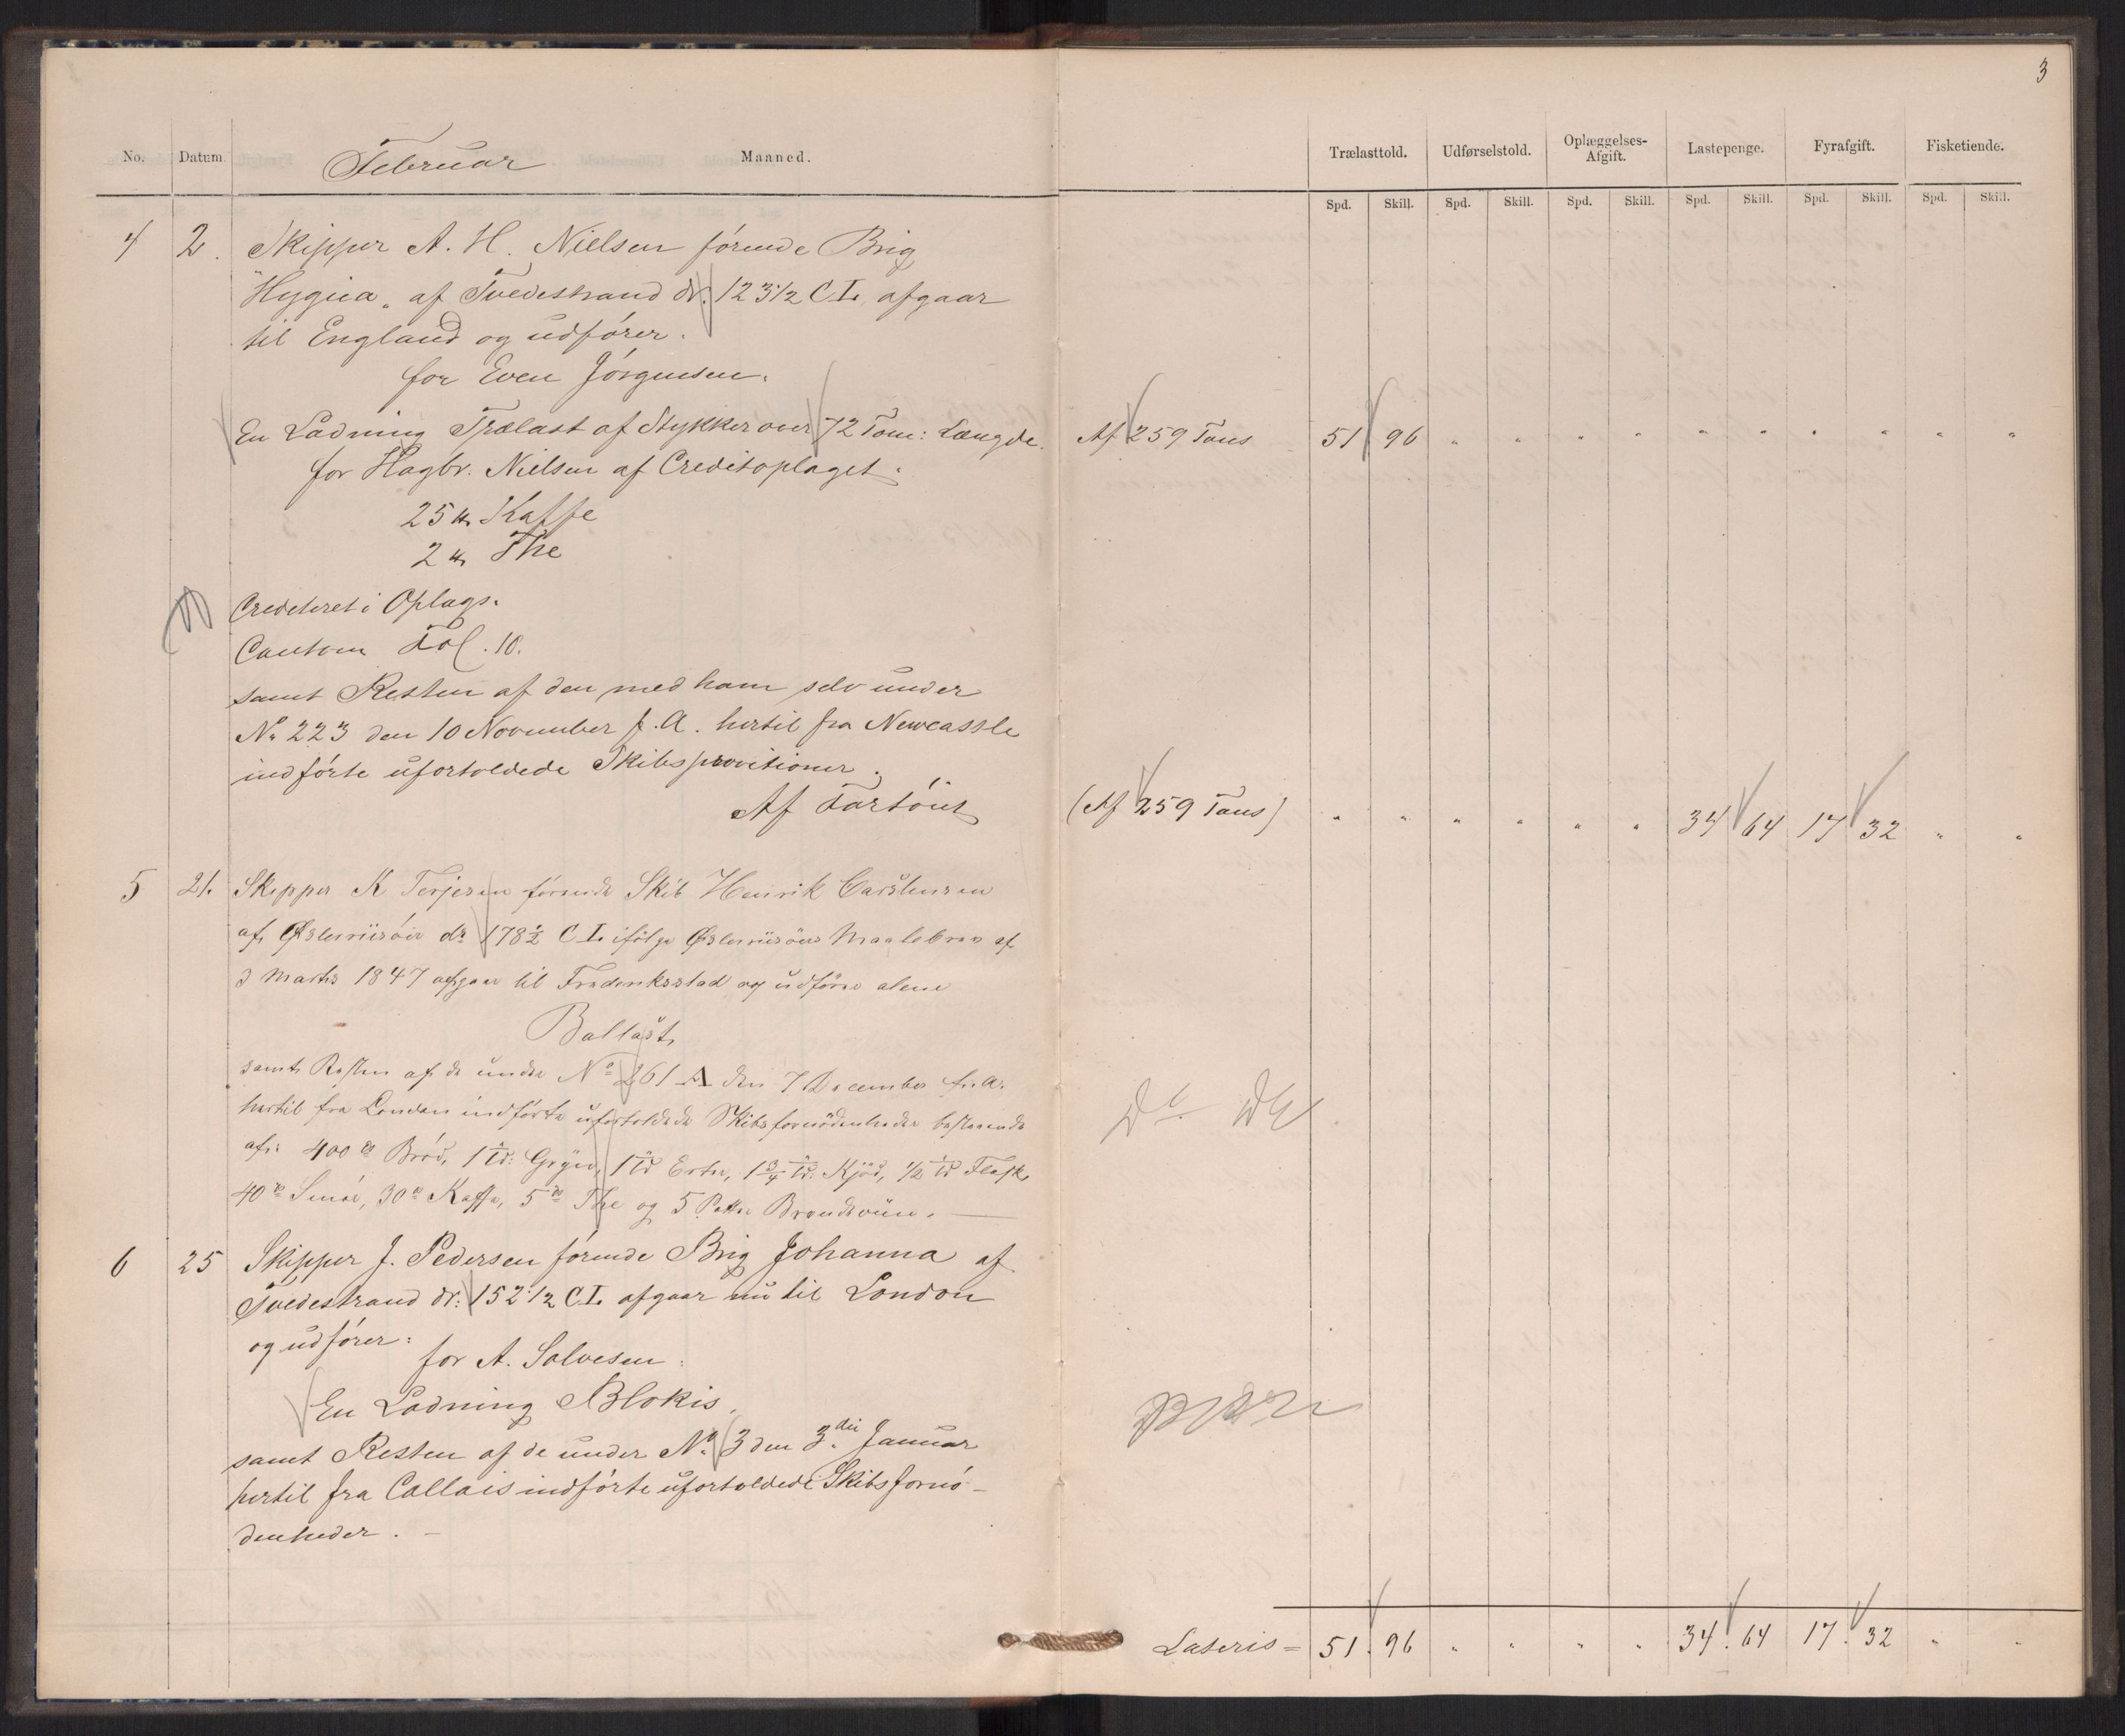 3
No. Datum. Februar Maaned.
Trælasttold. Udførselstold. Oplæggelses-Afgift. Lastepenge. Fyrafgift. Fisketiende.
Spd. Skill. Spd. Skill. Spd. Skill. Spd. Skill. Spd. Skill. Spd. Skill.
4 2. Skipper A. H. Nielsen førende Brig
"Hygiea" af Tvedestrand dr: 123 1/2 C.L. afgaar
til England og udfører.
for Even Jørgensen.
En Ladning Trælast af Stykker over 72 Tom: Længde. Af 259 Tons 51 96 " " " " " " " " " "
for Hagbr. Nielsen af Creditoplaget.
25 ℔ Kaffe
2 ℔ The
Crediteret i Oplags.
Contoen Fol. 10.
samt Resten af den med ham selv under
No 223 den 10 November f. A. hertil fra Newcassle
indførte ufortoldede Skibsprovitioner.
Af Fartöiet (Af 259 Tons) " " " " " " 34 64 17 32 " "
5 21. Skipper K Terjesen førende Skib Henrik Carstensen
af Østerriisöer dr 178 1/2 C.L. ifölge Østerriisöers Maalebrev af
3 Marts 1847 afgaar til Frederiksstad og udförer alene
Ballast,
samt Resten af de under No 261 A den 7 December f. A.
hertil fra London indförte ufortoldede Skibsfornödenheder bestaaende
af: 400 ℔ Bröd, 1 Td: Gryn, 1 Td Erter, 1 3/4 Td: Kjöd, 1/2 Td Flesk,
40 ℔ Smör, 30 ℔ Kaffe, 5 ℔ The og 5 Potter Brændeviin.
6 25 Skipper J. Pedersen førende Brig Johanna af
Tvedestrand dr: 152 1/2 C.L. afgaar nu til London
og udfører:
for A. Salvesen:
En Ladning Blokis,
samt Resten af de under No. 3 den 3.die Januar
hertil fra Callais indførte ufortoldede Skibsfornö-
denheder. -
Lateris = 51. 96 " " " " 34. 64 17. 32 " "